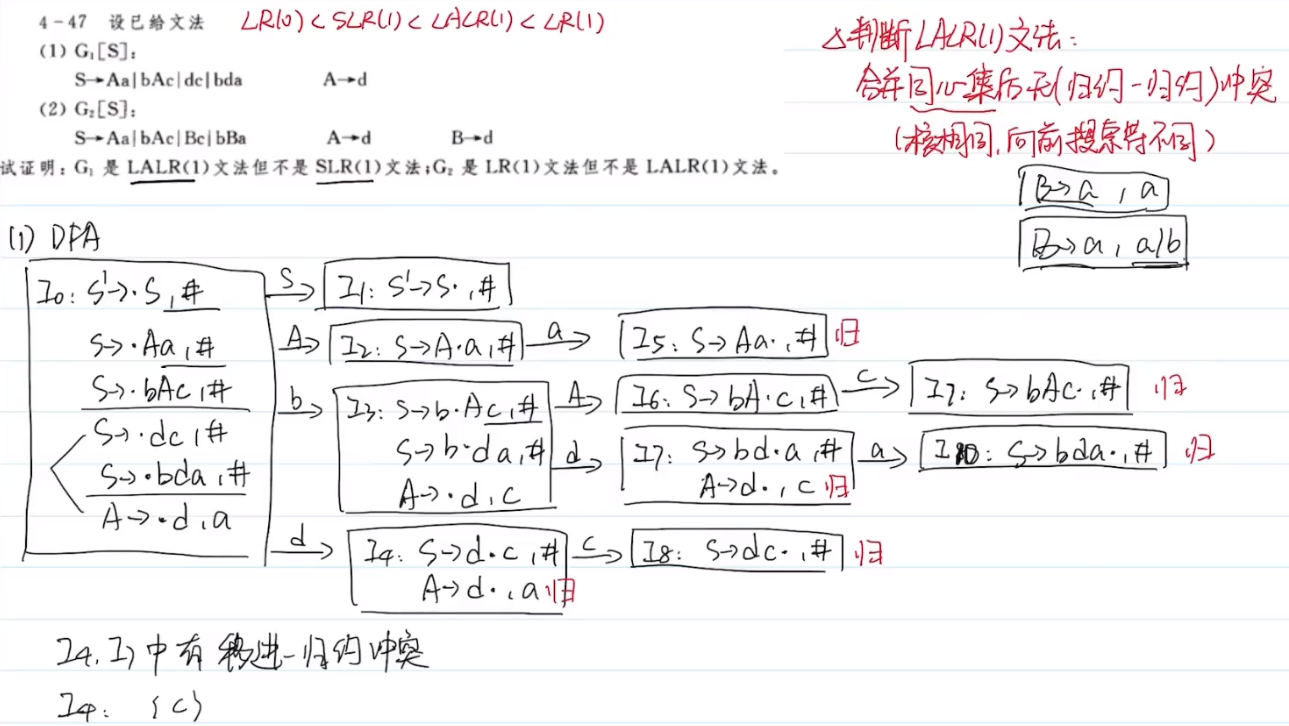 4-47 设已给文法 LR(0)<SLR(1)<LALR(1)<LR(1)
(1) G₁[S]:
S→Aa|bAc|dc|bda A→d
(2) G₂[S]:
S→Aa|bAc|Bc|bBa A→d B→d
试证明:G₁ 是 LALR(1)文法但不是 SLR(1)文法;G₂ 是 LR(1)文法但不是 LALR(1)文法。
△判断LALR(1)文法:
合并同心集后无(归约-归约)冲突
(核相同,向前搜索符不同)
B→a , a
B→a , a/b
(1) DFA
I0: S'→·S,#
S→·Aa,#
S→·bAc,#
S→·dc,#
S→·bda,#
A→·d,a
S
I1: S'→S·,#
A
I2: S→A·a,#
a
I5: S→Aa·,# 归
b
I3: S→b·Ac,#
S→b·da,#
A→·d,c
A
I6: S→bA·c,#
c
I7: S→bAc·,# 归
d
I7: S→bd·a,#
A→d·,c 归
a
I10: S→bda·,# 归
d
I4: S→d·c,#
A→d·,a 归
c
I8: S→dc·,# 归
I4,I7中有移进-归约冲突
I4: {c}